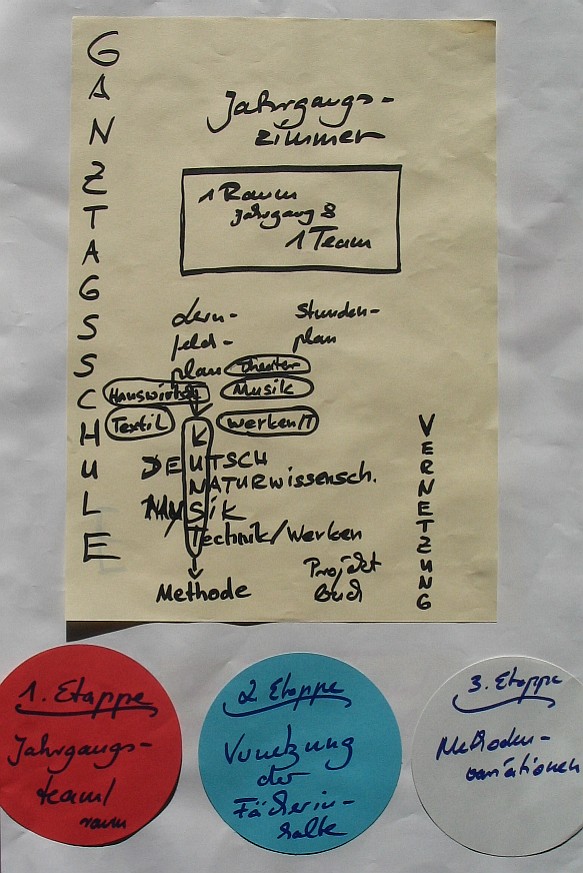 GANZTAGSSCHULE
Jahrgangs-
zimmer
1 Raum
Jahrgang 8
1 Team
Lern-
feld-
plan
Stunden-
plan
Theater
Hauswirtsch
Musik
Textil
Werken/T
K
DEUTSCH
NATURwissensch.
MUSiK
Technik/Werken
Methode
Projekt
Buch
VERNETZUNG
1. Etappe
Jahrgangs-
team/
raum
2. Etappe
Vernetzung
der
Fächerin-
halte
3. Etappe
Methoden-
variationen